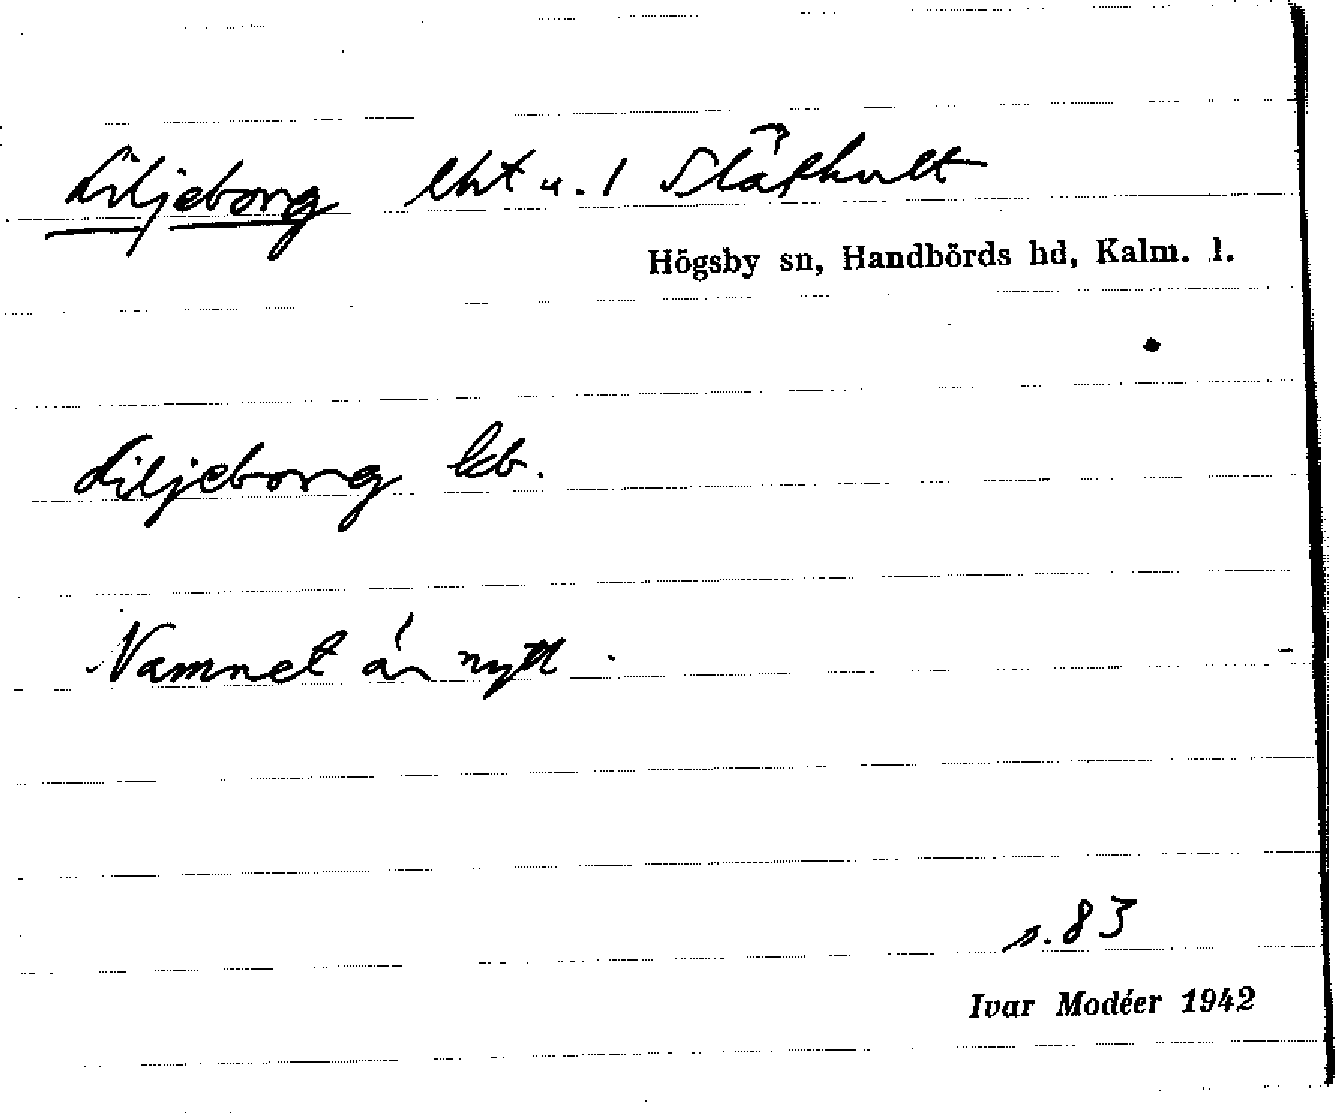 Liljeborg lht u. 1 Släthult
Högsby sn, Handbörds hd, Kalm. l.
Liljeborg kb.
Namnet är nytt.
s. 83
Ivar Modéer 1942